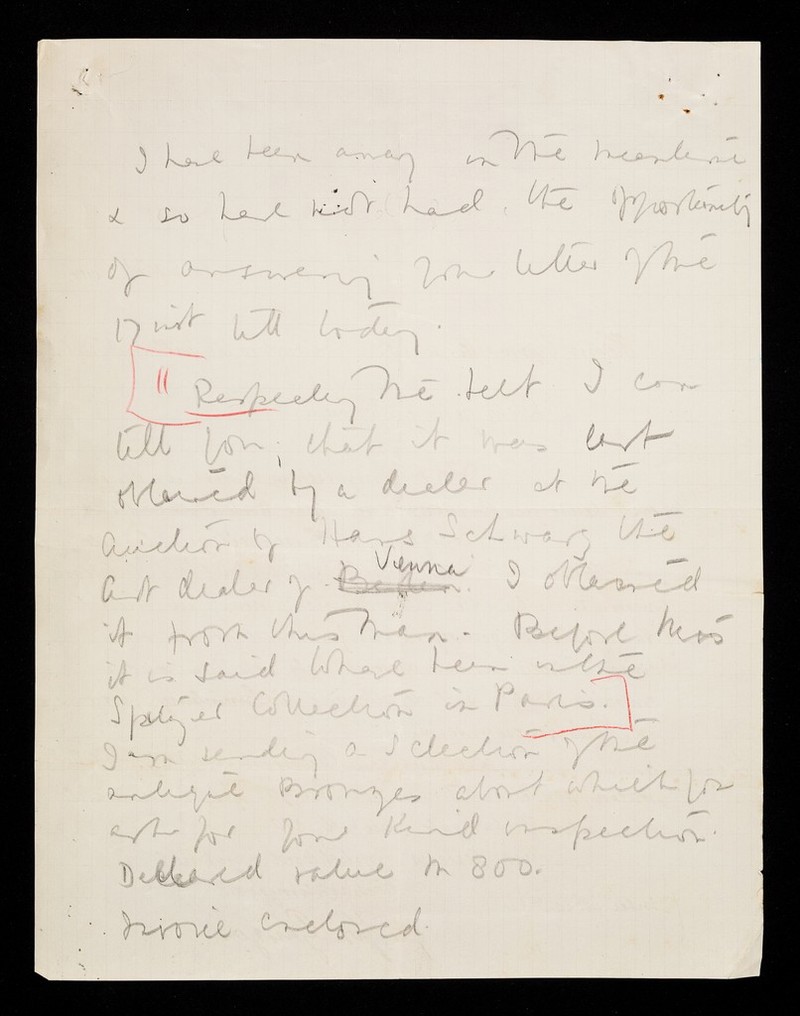 I have been away in the meantime
& so have not had the opportunity
of answering your letter of the
17 inst till today.
" Respecting the belt I can
tell you, that it was last
obtained by a dealer at the
auction of Hans Schwarz the
art dealer of Berlin Vienna. I obtained
it from this man. Before this
it is said to have been in the
Spitzer Collection in Paris.
I am sending a selection of the
antique Bronzes about which you
ask for your kind inspection.
Declared value M 800.
Invoice enclosed